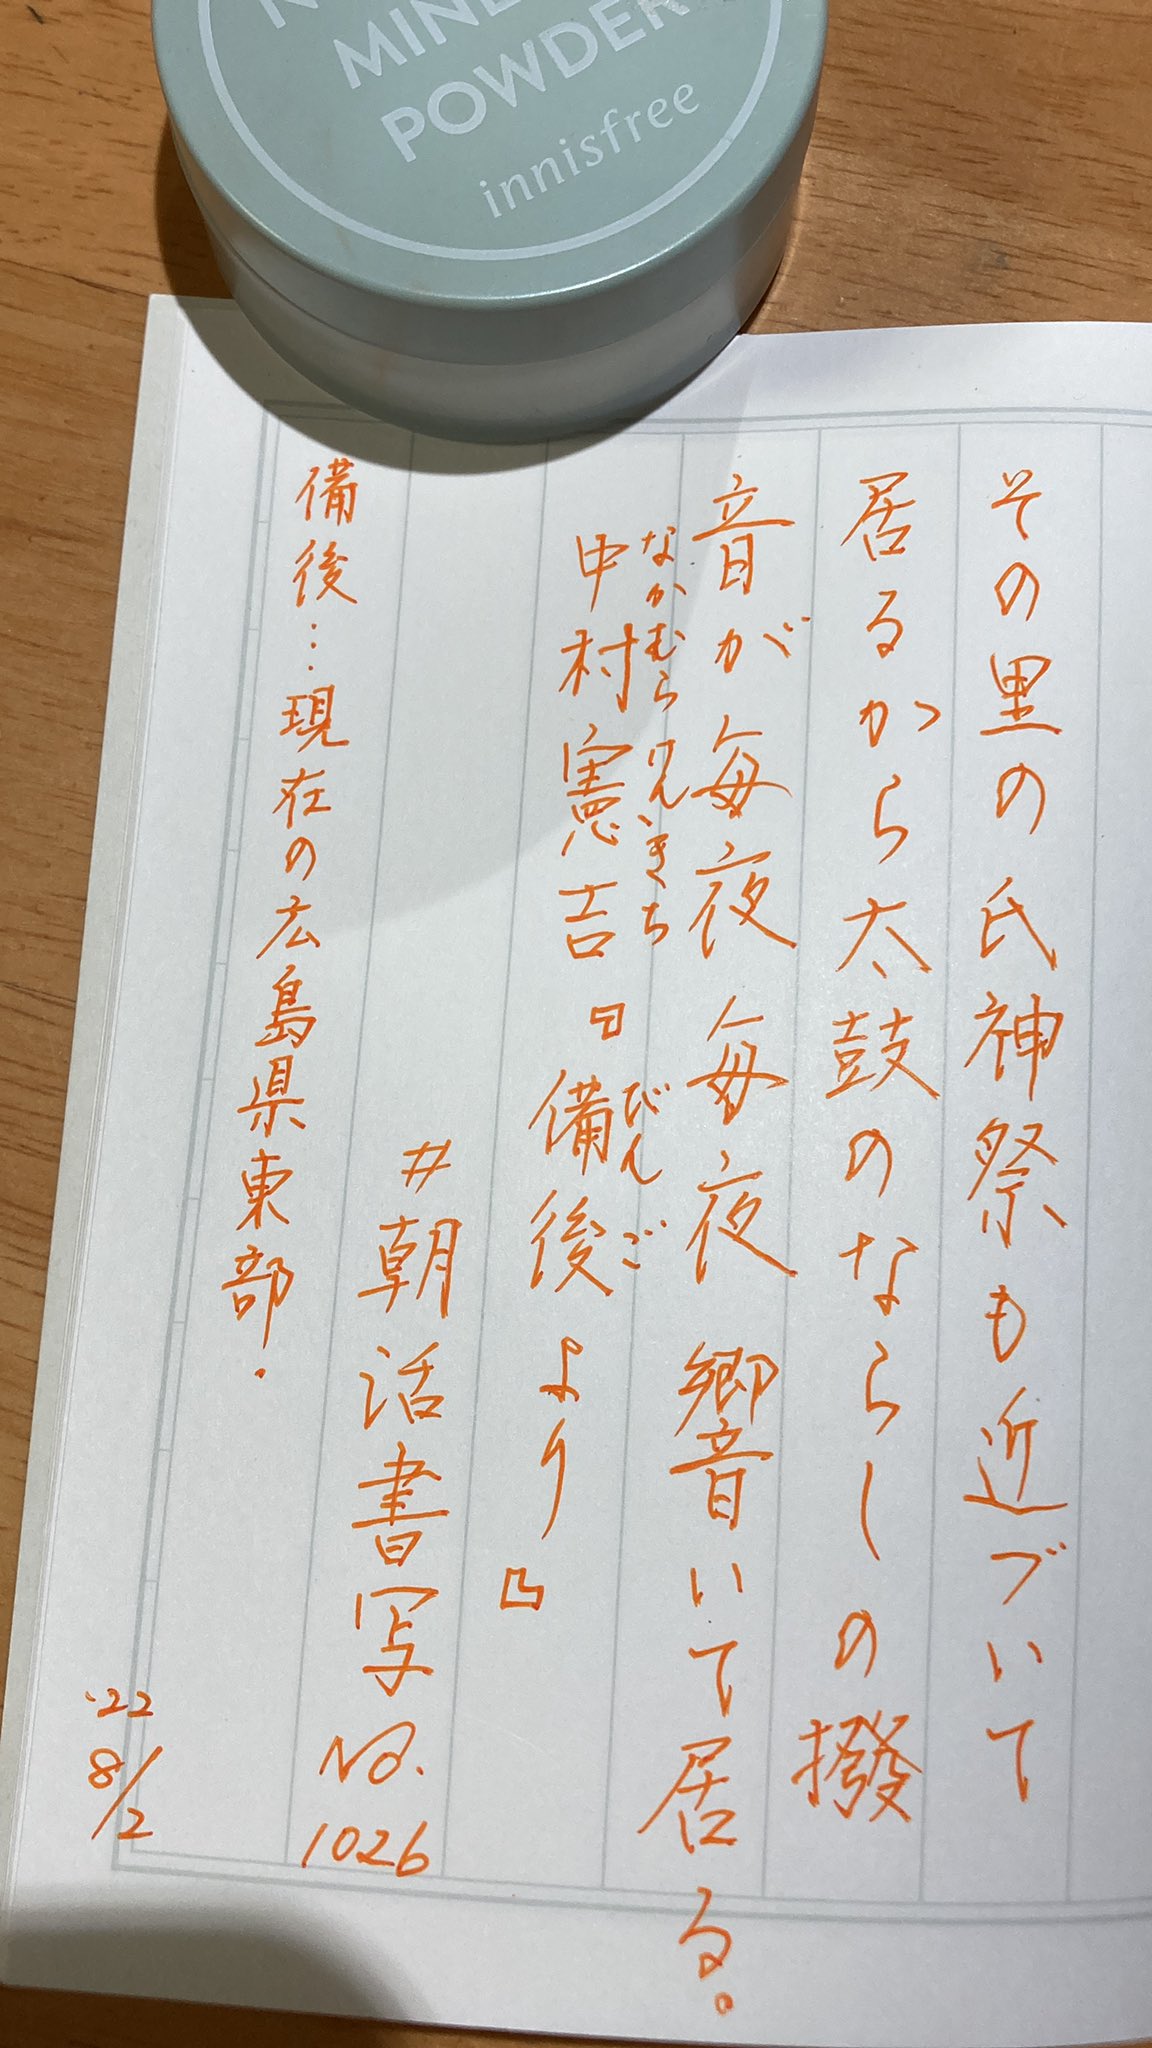 MIN
POWDER
innisfree
その里の氏神祭も近づいて
居るから太鼓のならしの撥
音が毎夜毎夜響いて居る。
なかむら けんきち びんご
中村憲吉『備後より』
#朝活書写 No. 1026
備後…現在の広島県東部.
'22 8/2